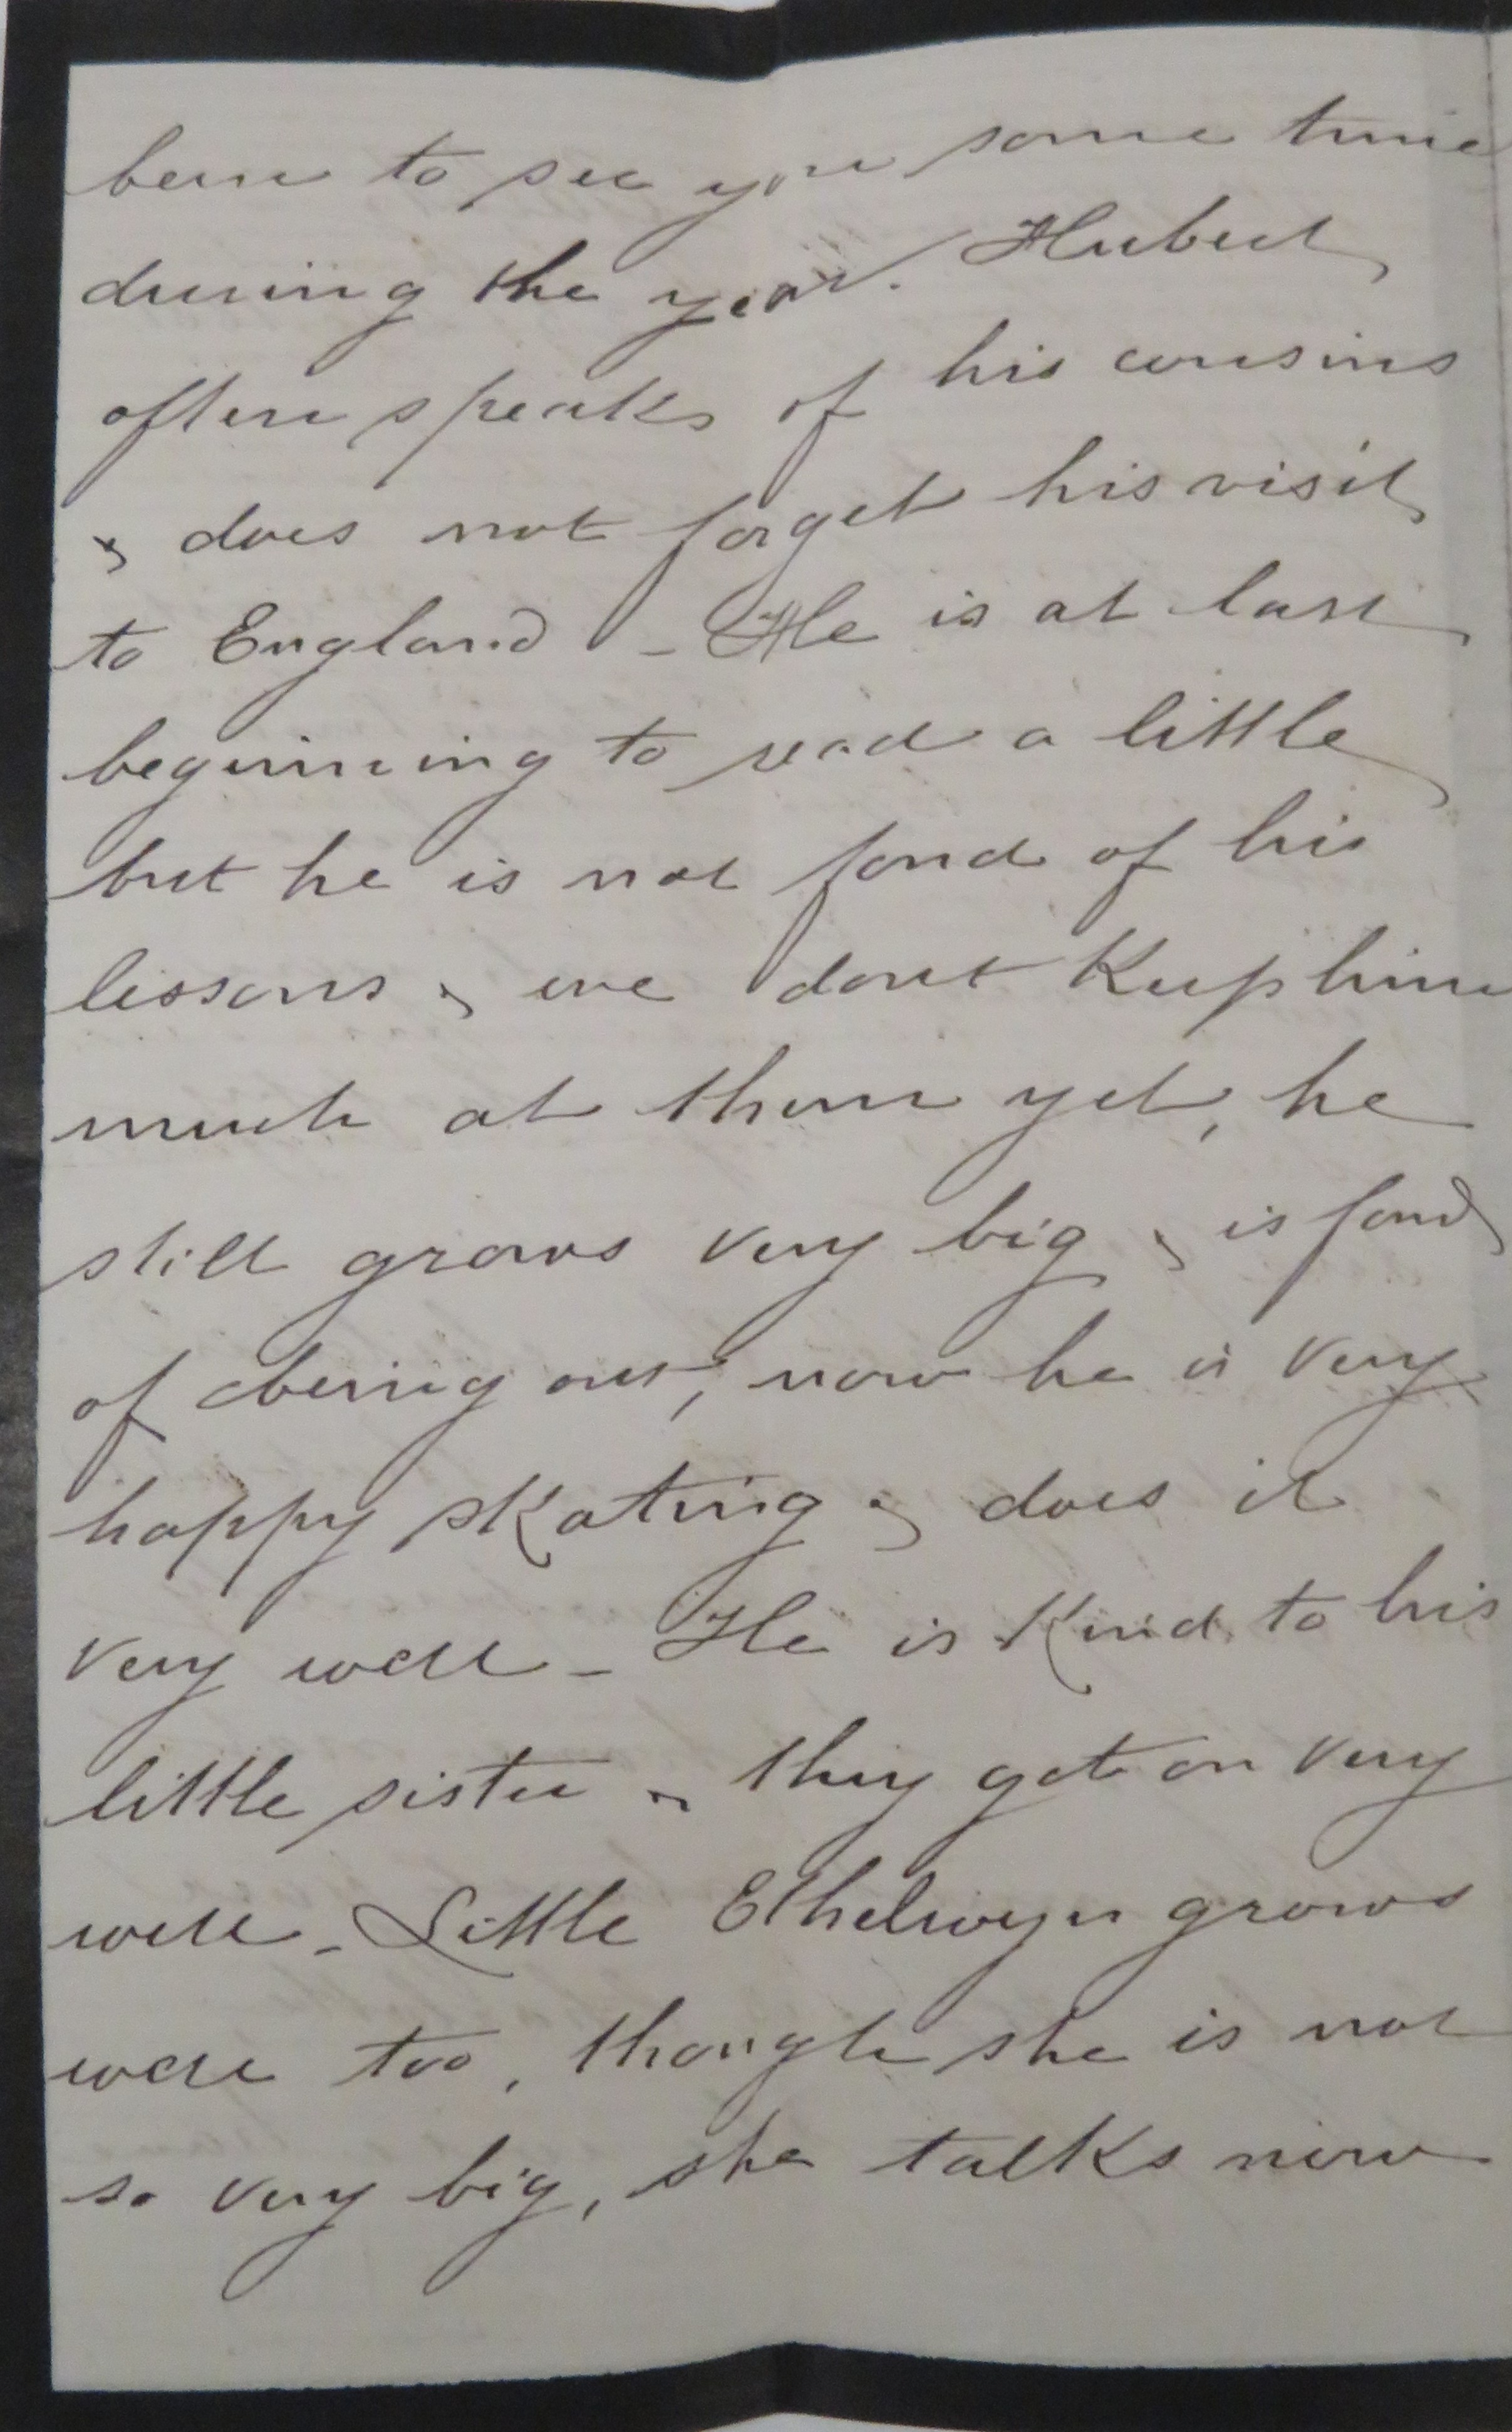 been to see you some time
during the year. Hubert
often speaks of his cousins
& does not forget his visit
to England - He is at last
beginning to read a little
but he is not fond of his
lessons & we dont keep him
much at them yet, he
still grows very big & is fond
of being out, now he is very
happy skating & does it
very well - He is kind to his
little sister & they get on very
well - Little Ethelwyn grows
well too, though she is not
so very big, she talks now